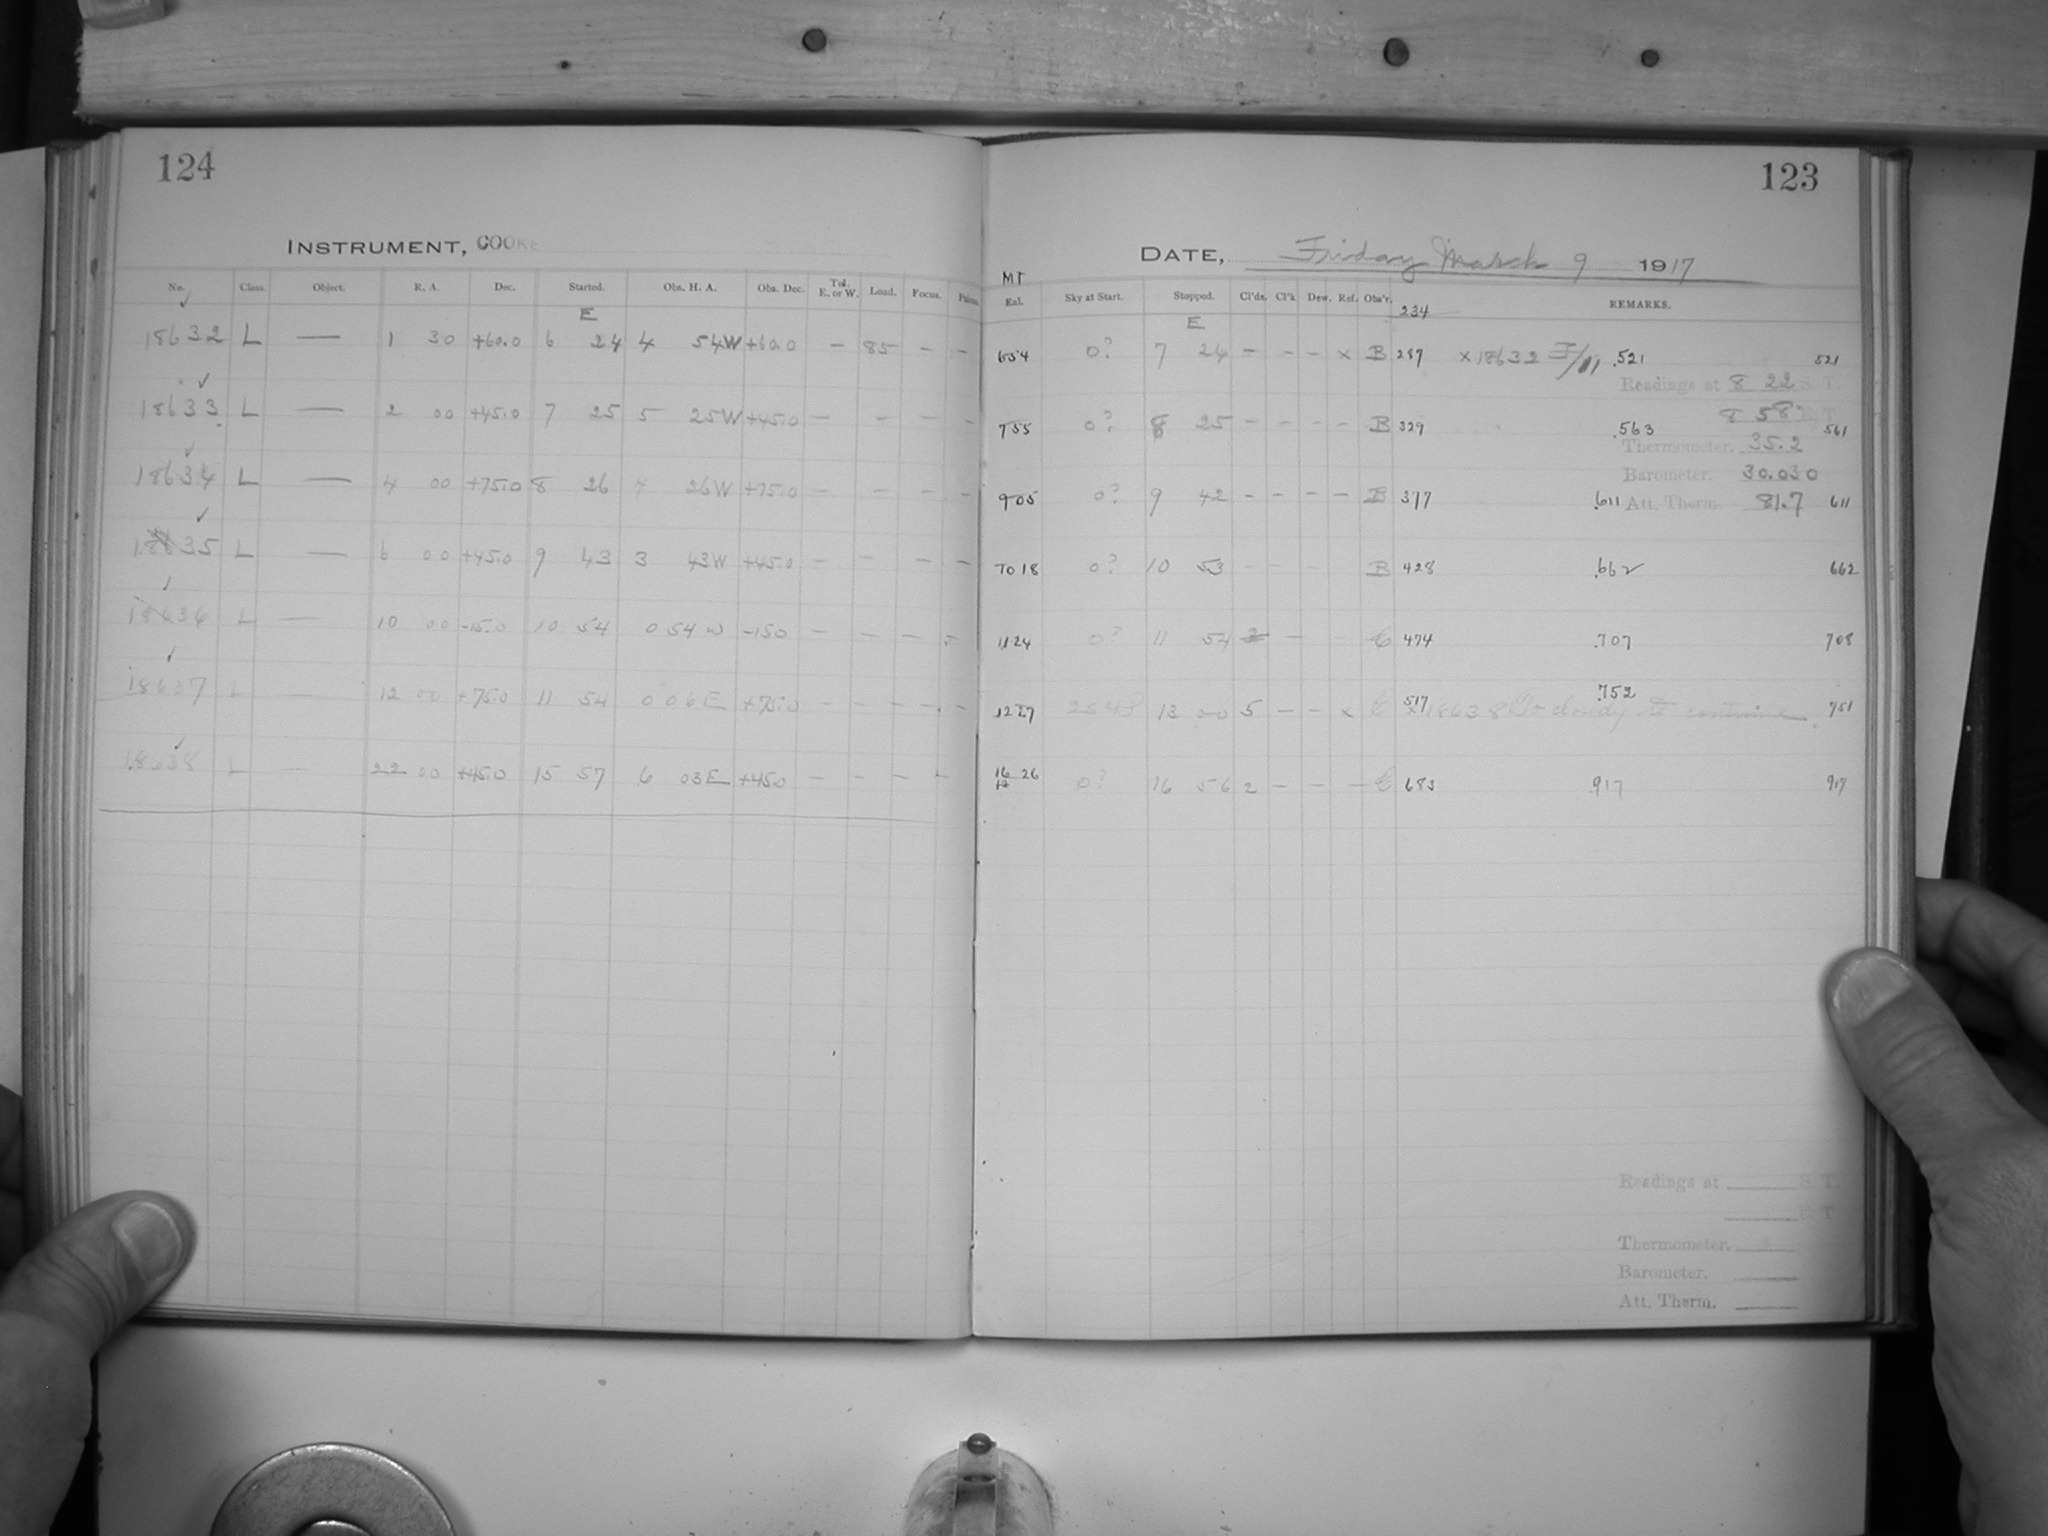 124
INSTRUMENT, COOKE
No. Class. Object. R. A. Dec. Started. Obs. H. A. Obs. Dec. Tel. E. or W. Load. Focus.
E
18632 L — 1 30 +60.0 6 24 4 54W +60.0 — 85 — —
18633 L — 2 00 +45.0 7 25 5 25W +45.0 — — — —
18634 L — 4 00 +75.0 8 26 4 26W +75.0 — — — —
18635 L — 6 00 +45.0 9 43 3 43W +45.0 — — — —
18636 L — 10 00 -15.0 10 54 0 54 W -15.0 — — — —
18637 L — 12 00 +75.0 11 54 0 06 E +75.0 — — — —
18638 L — 22 00 +45.0 15 57 6 03E +45.0 — — — —
123
DATE, Friday March 9 1917
MT
Sky at Start. Stopped. Cl'ds. Cl'k Dew. Ref. Obs'r. 234 REMARKS.
E
654 0? 7 24 — — — x B 287 x 18632 .521 521
Readings at 8 22 S. T.
8 58 E. T.
755 0? 8 25 — — — — B 329 .563 561
Thermometer, 35.2
Barometer, 30.030
905 0? 9 42 — — — — B 377 .611 Att. Therm. 81.7 611
10 18 0? 10 53 — — — B 428 .662 662
11 24 0? 11 54 2 — — C 474 .707 708
12 27 13 00 5 — — x C 517 .752 x 18638 Too cloudy to continue. 751
16 26 0? 16 56 2 — — — C 683 .917 917
Readings at S. T.
E. T.
Thermometer,
Barometer,
Att. Therm.